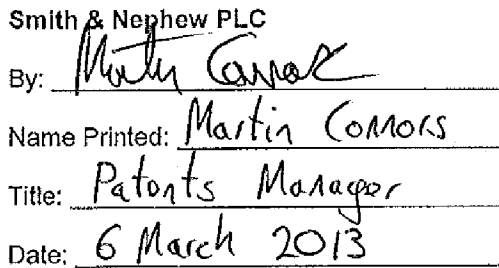 Smith & Nephew PLC
By: Martin Connors
Name Printed: Martin Connors
Title: Patents Manager
Date: 6 March 2013